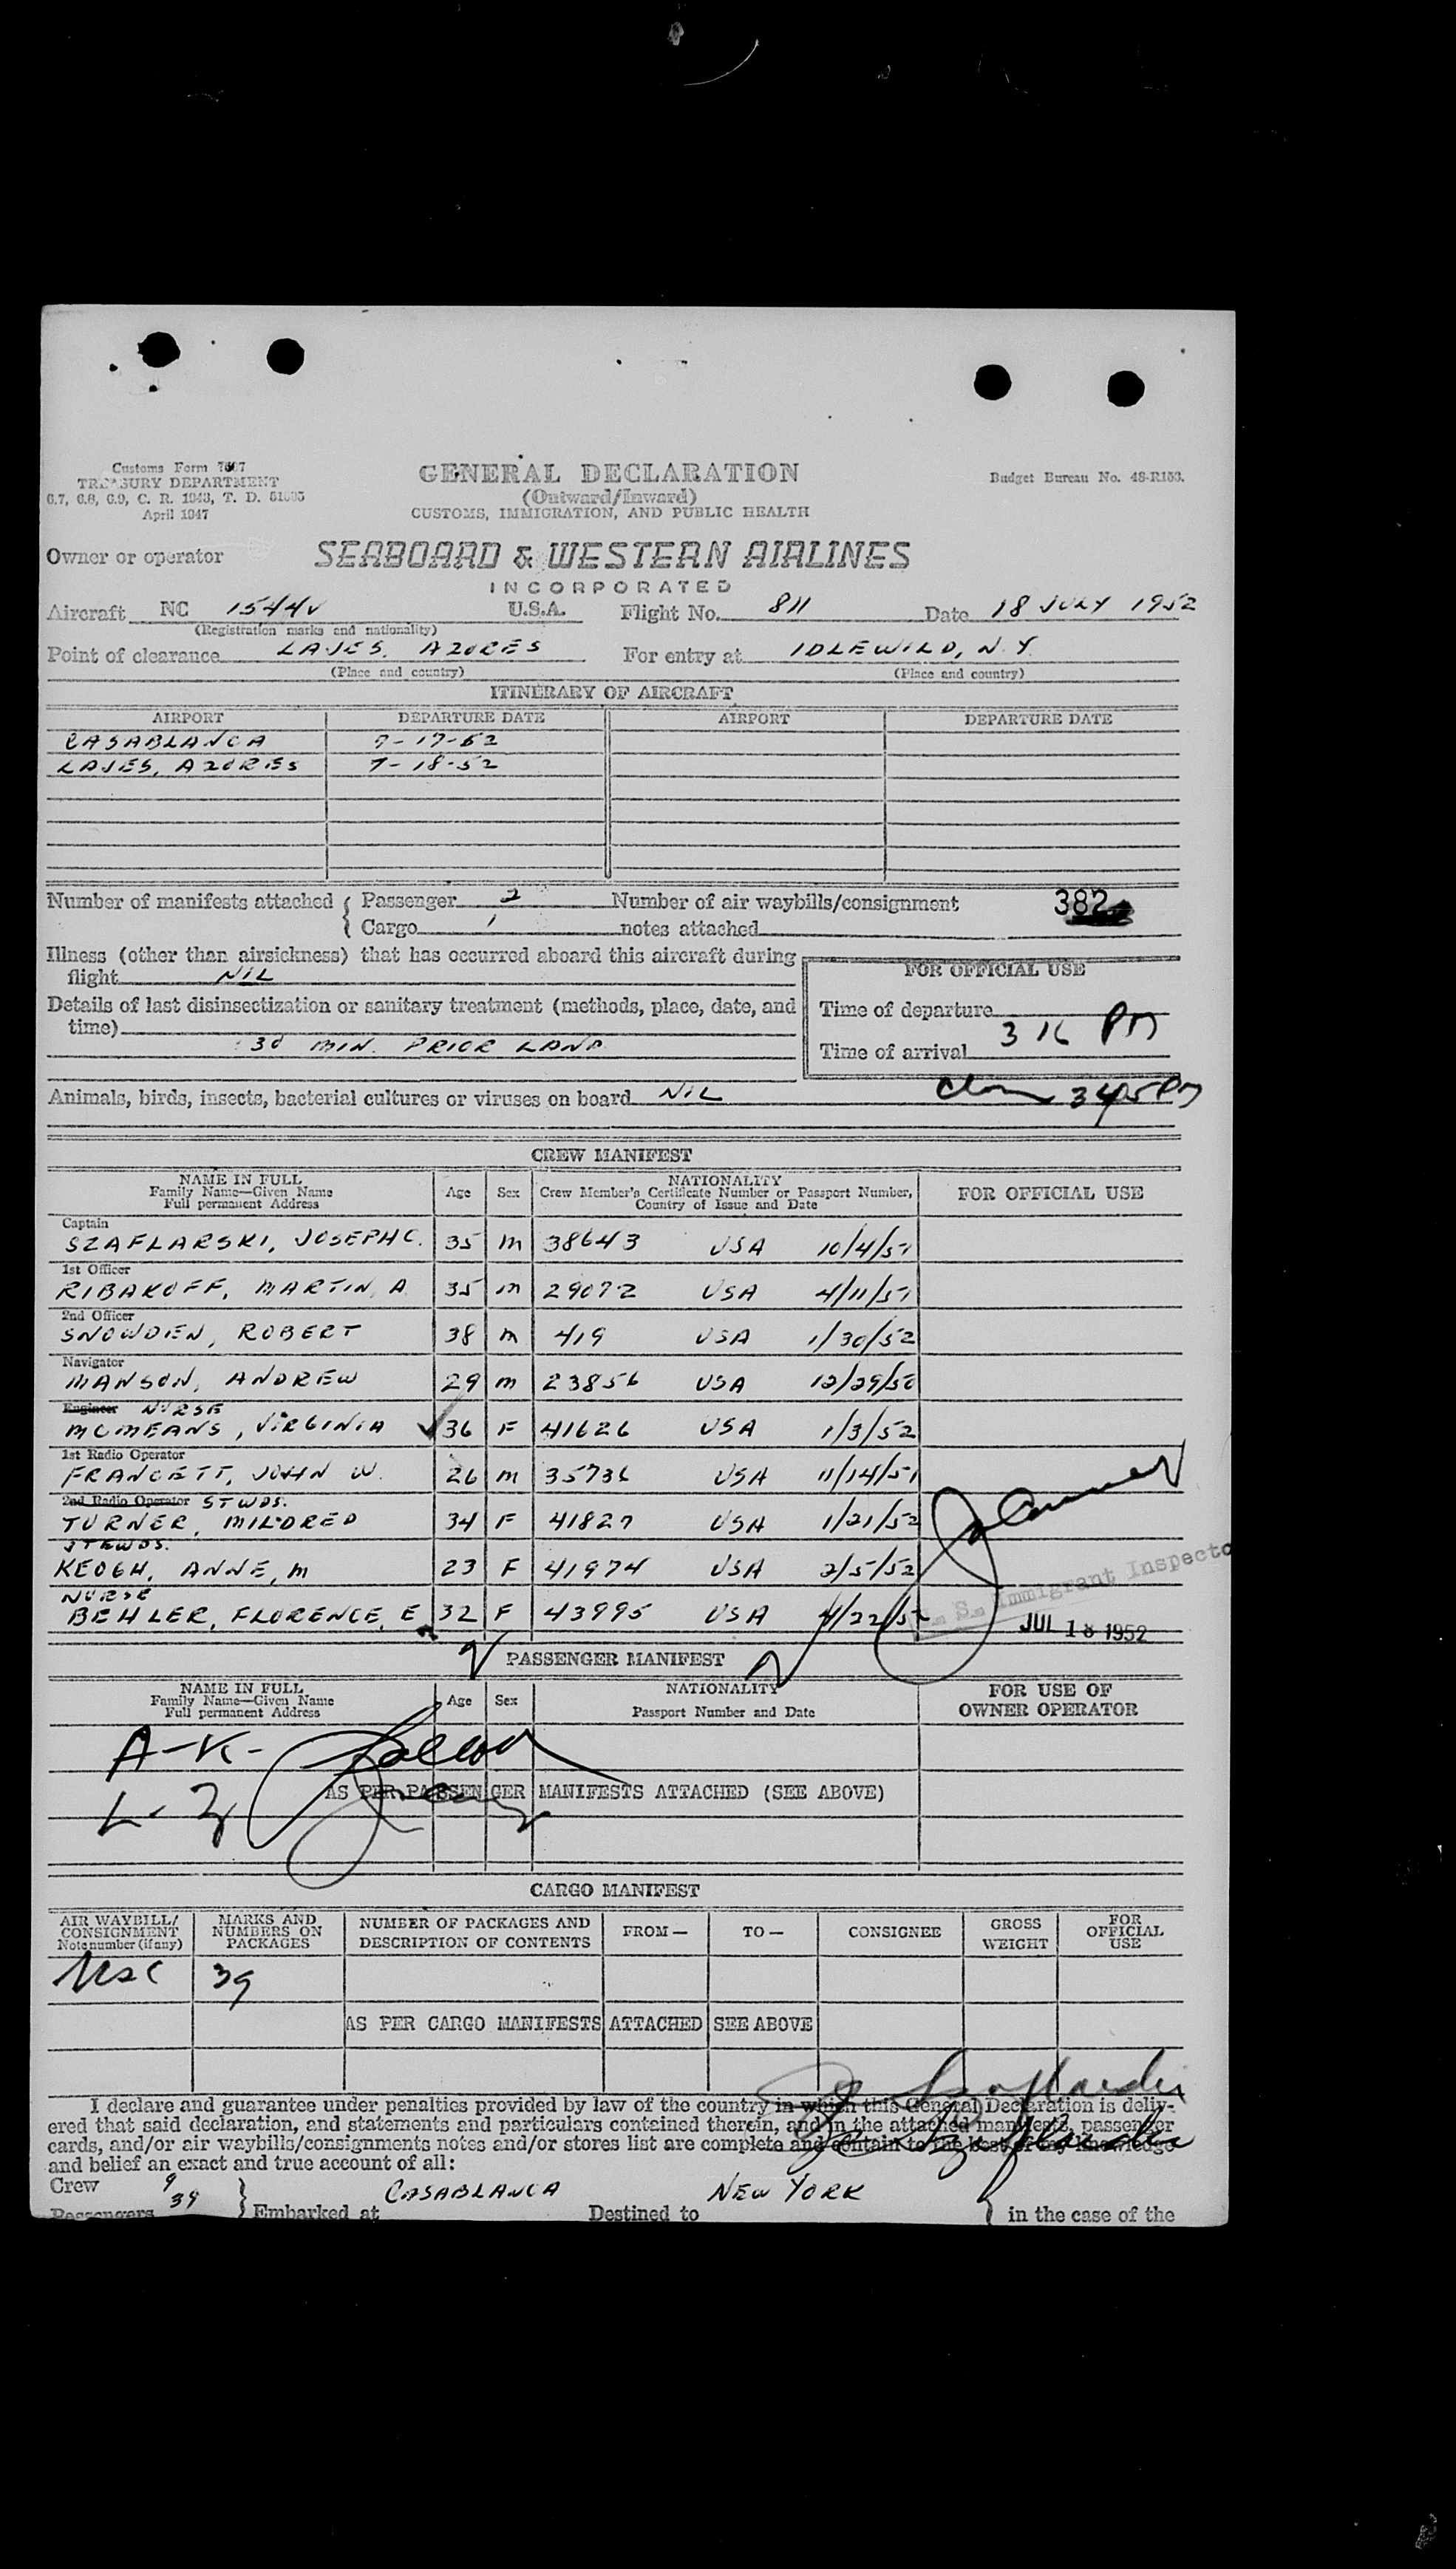 Customs Form 7507
TREASURY DEPARTMENT
6.7, 6.8, 6.9, C. R. 1943, T. D.
April 1947
GENERAL DECLARATION
(Outward/Inward)
CUSTOMS, IMMIGRATION, AND PUBLIC HEALTH
Budget Bureau No. 48-R153.
Owner or operator SEABOARD & WESTERN AIRLINES
INCORPORATED
Aircraft NC 1544V U.S.A. Flight No. 811 Date 18 JULY 1952
(Registration marks and nationality)
Point of clearance LAJES, AZORES For entry at IDLEWILD, N.Y.
(Place and country) (Place and country)
ITINERARY OF AIRCRAFT
AIRPORT DEPARTURE DATE AIRPORT DEPARTURE DATE
CASABLANCA 7-17-52
LAJES, AZORES 7-18-52
Number of manifests attached { Passenger 2 Number of air waybills/consignment 382
Cargo 1 notes attached
Illness (other than airsickness) that has occurred aboard this aircraft during
flight NIL
FOR OFFICIAL USE
Details of last disinsectization or sanitary treatment (methods, place, date, and
time)
30 MIN. PRIOR LAND
Time of departure
Time of arrival 3 16 PM
Animals, birds, insects, bacterial cultures or viruses on board NIL
345 PM
CREW MANIFEST
NAME IN FULL Age Sex NATIONALITY FOR OFFICIAL USE
Family Name—Given Name Crew Member's Certificate Number or Passport Number,
Full permanent Address Country of Issue and Date
Captain
SZAFLARSKI, JOSEPH C. 35 M 38643 USA 10/4/51
1st Officer
RIBAKOFF, MARTIN, A 35 M 29072 USA 4/11/51
2nd Officer
SNOWDEN, ROBERT 38 M 419 USA 1/30/52
Navigator
MANSON, ANDREW 29 M 23856 USA 12/29/50
Engineer NURSE
MCMEANS, VIRGINIA 36 F 41626 USA 1/3/52
1st Radio Operator
FRANCETT, JOHN W. 26 M 35736 USA 11/14/51
2nd Radio Operator STWDS.
TURNER, MILDRED 34 F 41827 USA 1/21/52
STEWDS.
KEOGH, ANNE, M 23 F 41974 USA 2/5/52
NURSE
BEHLER, FLORENCE, E 32 F 43995 USA 4/22/52
U. S. Immigrant Inspector
JUL 18 1952
PASSENGER MANIFEST
NAME IN FULL Age Sex NATIONALITY FOR USE OF
Family Name—Given Name Passport Number and Date OWNER OPERATOR
Full permanent Address
A-K-
AS PER PASSENGER MANIFESTS ATTACHED (SEE ABOVE)
L-Z
CARGO MANIFEST
AIR WAYBILL/ CONSIGNMENT Note number (if any) MARKS AND NUMBERS ON PACKAGES NUMBER OF PACKAGES AND DESCRIPTION OF CONTENTS FROM— TO— CONSIGNEE GROSS WEIGHT FOR OFFICIAL USE
39
AS PER CARGO MANIFESTS ATTACHED SEE ABOVE
I declare and guarantee under penalties provided by law of the country in which this General Declaration is deliv-
ered that said declaration, and statements and particulars contained therein, and in the attached manifests, passenger
cards, and/or air waybills/consignments notes and/or stores list are complete and contain to the best of my knowledge
and belief an exact and true account of all:
Crew 9
Passengers 39 } Embarked at CASABLANCA Destined to NEW YORK } in the case of the